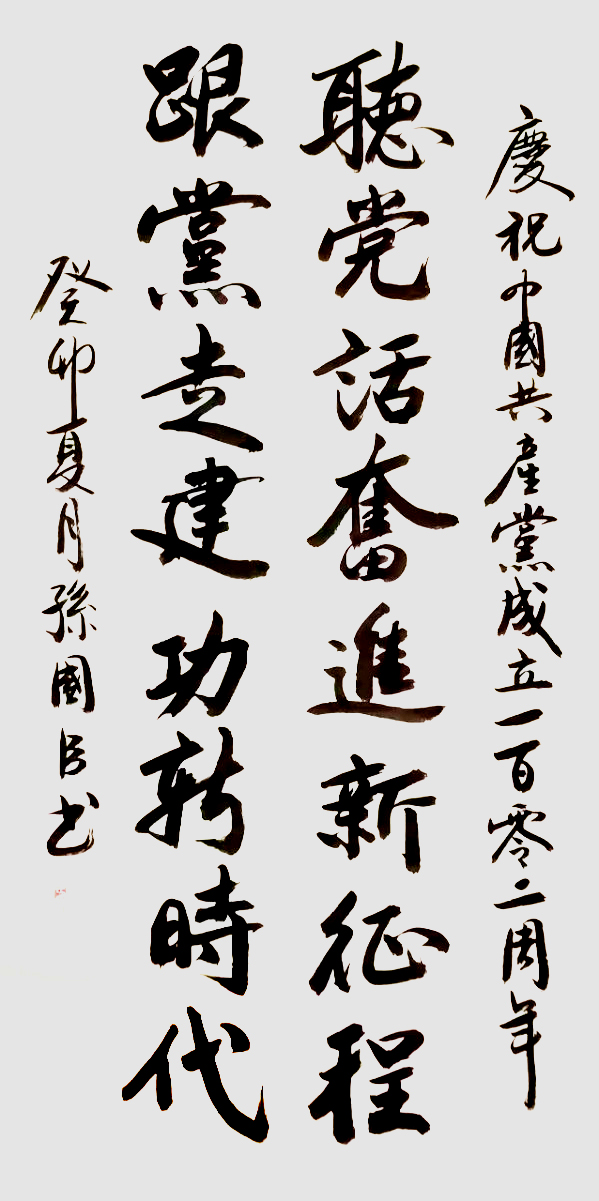 慶祝中國共産黨成立一百零二周年
聽党話奮進新征程
跟黨走建功新時代
癸卯夏月孫國臣书